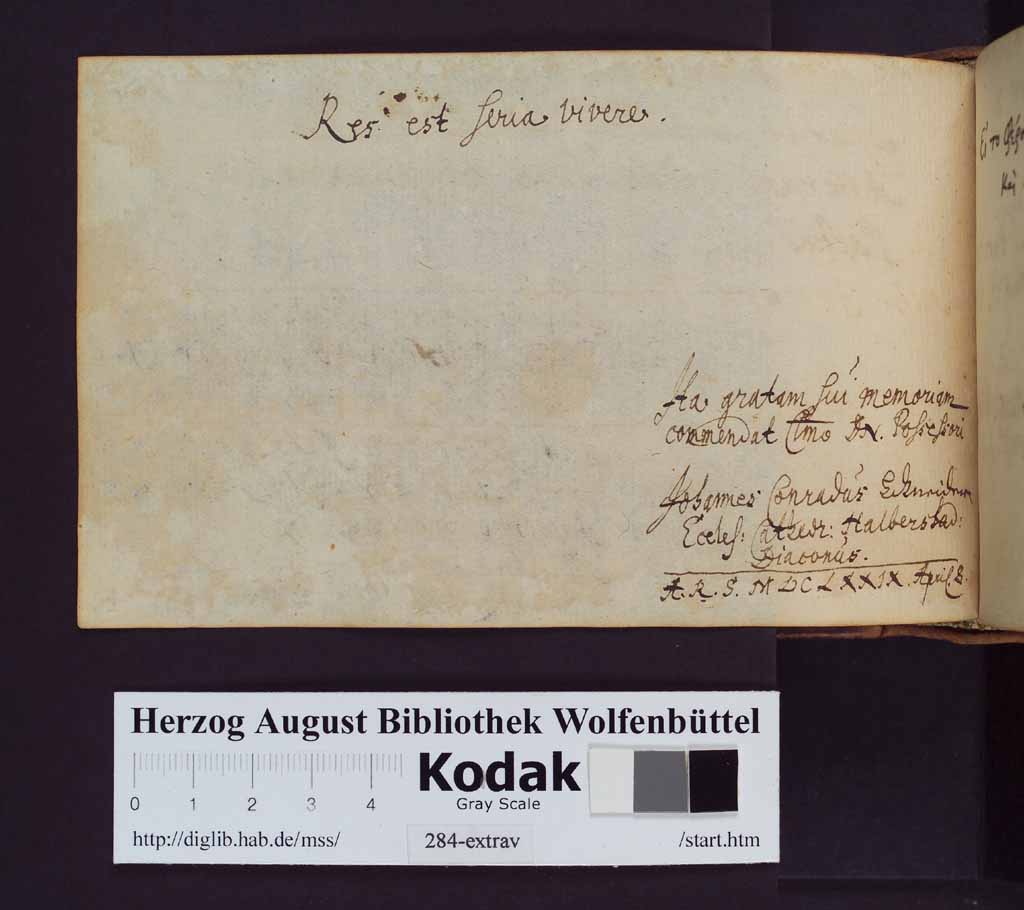 Res est seria vivere.
Ita gratam sui memoriam
commendat Clmo Dn. Possessori
Johannes Conradus Schneider
Eccles: Cathedr: Halberstad:
Diaconus.
A. R. S. MDCLXXIX. April.
Herzog August Bibliothek Wolfenbüttel
Kodak
Gray Scale
0 1 2 3 4
http://diglib.hab.de/mss/ 284-extrav /start.htm